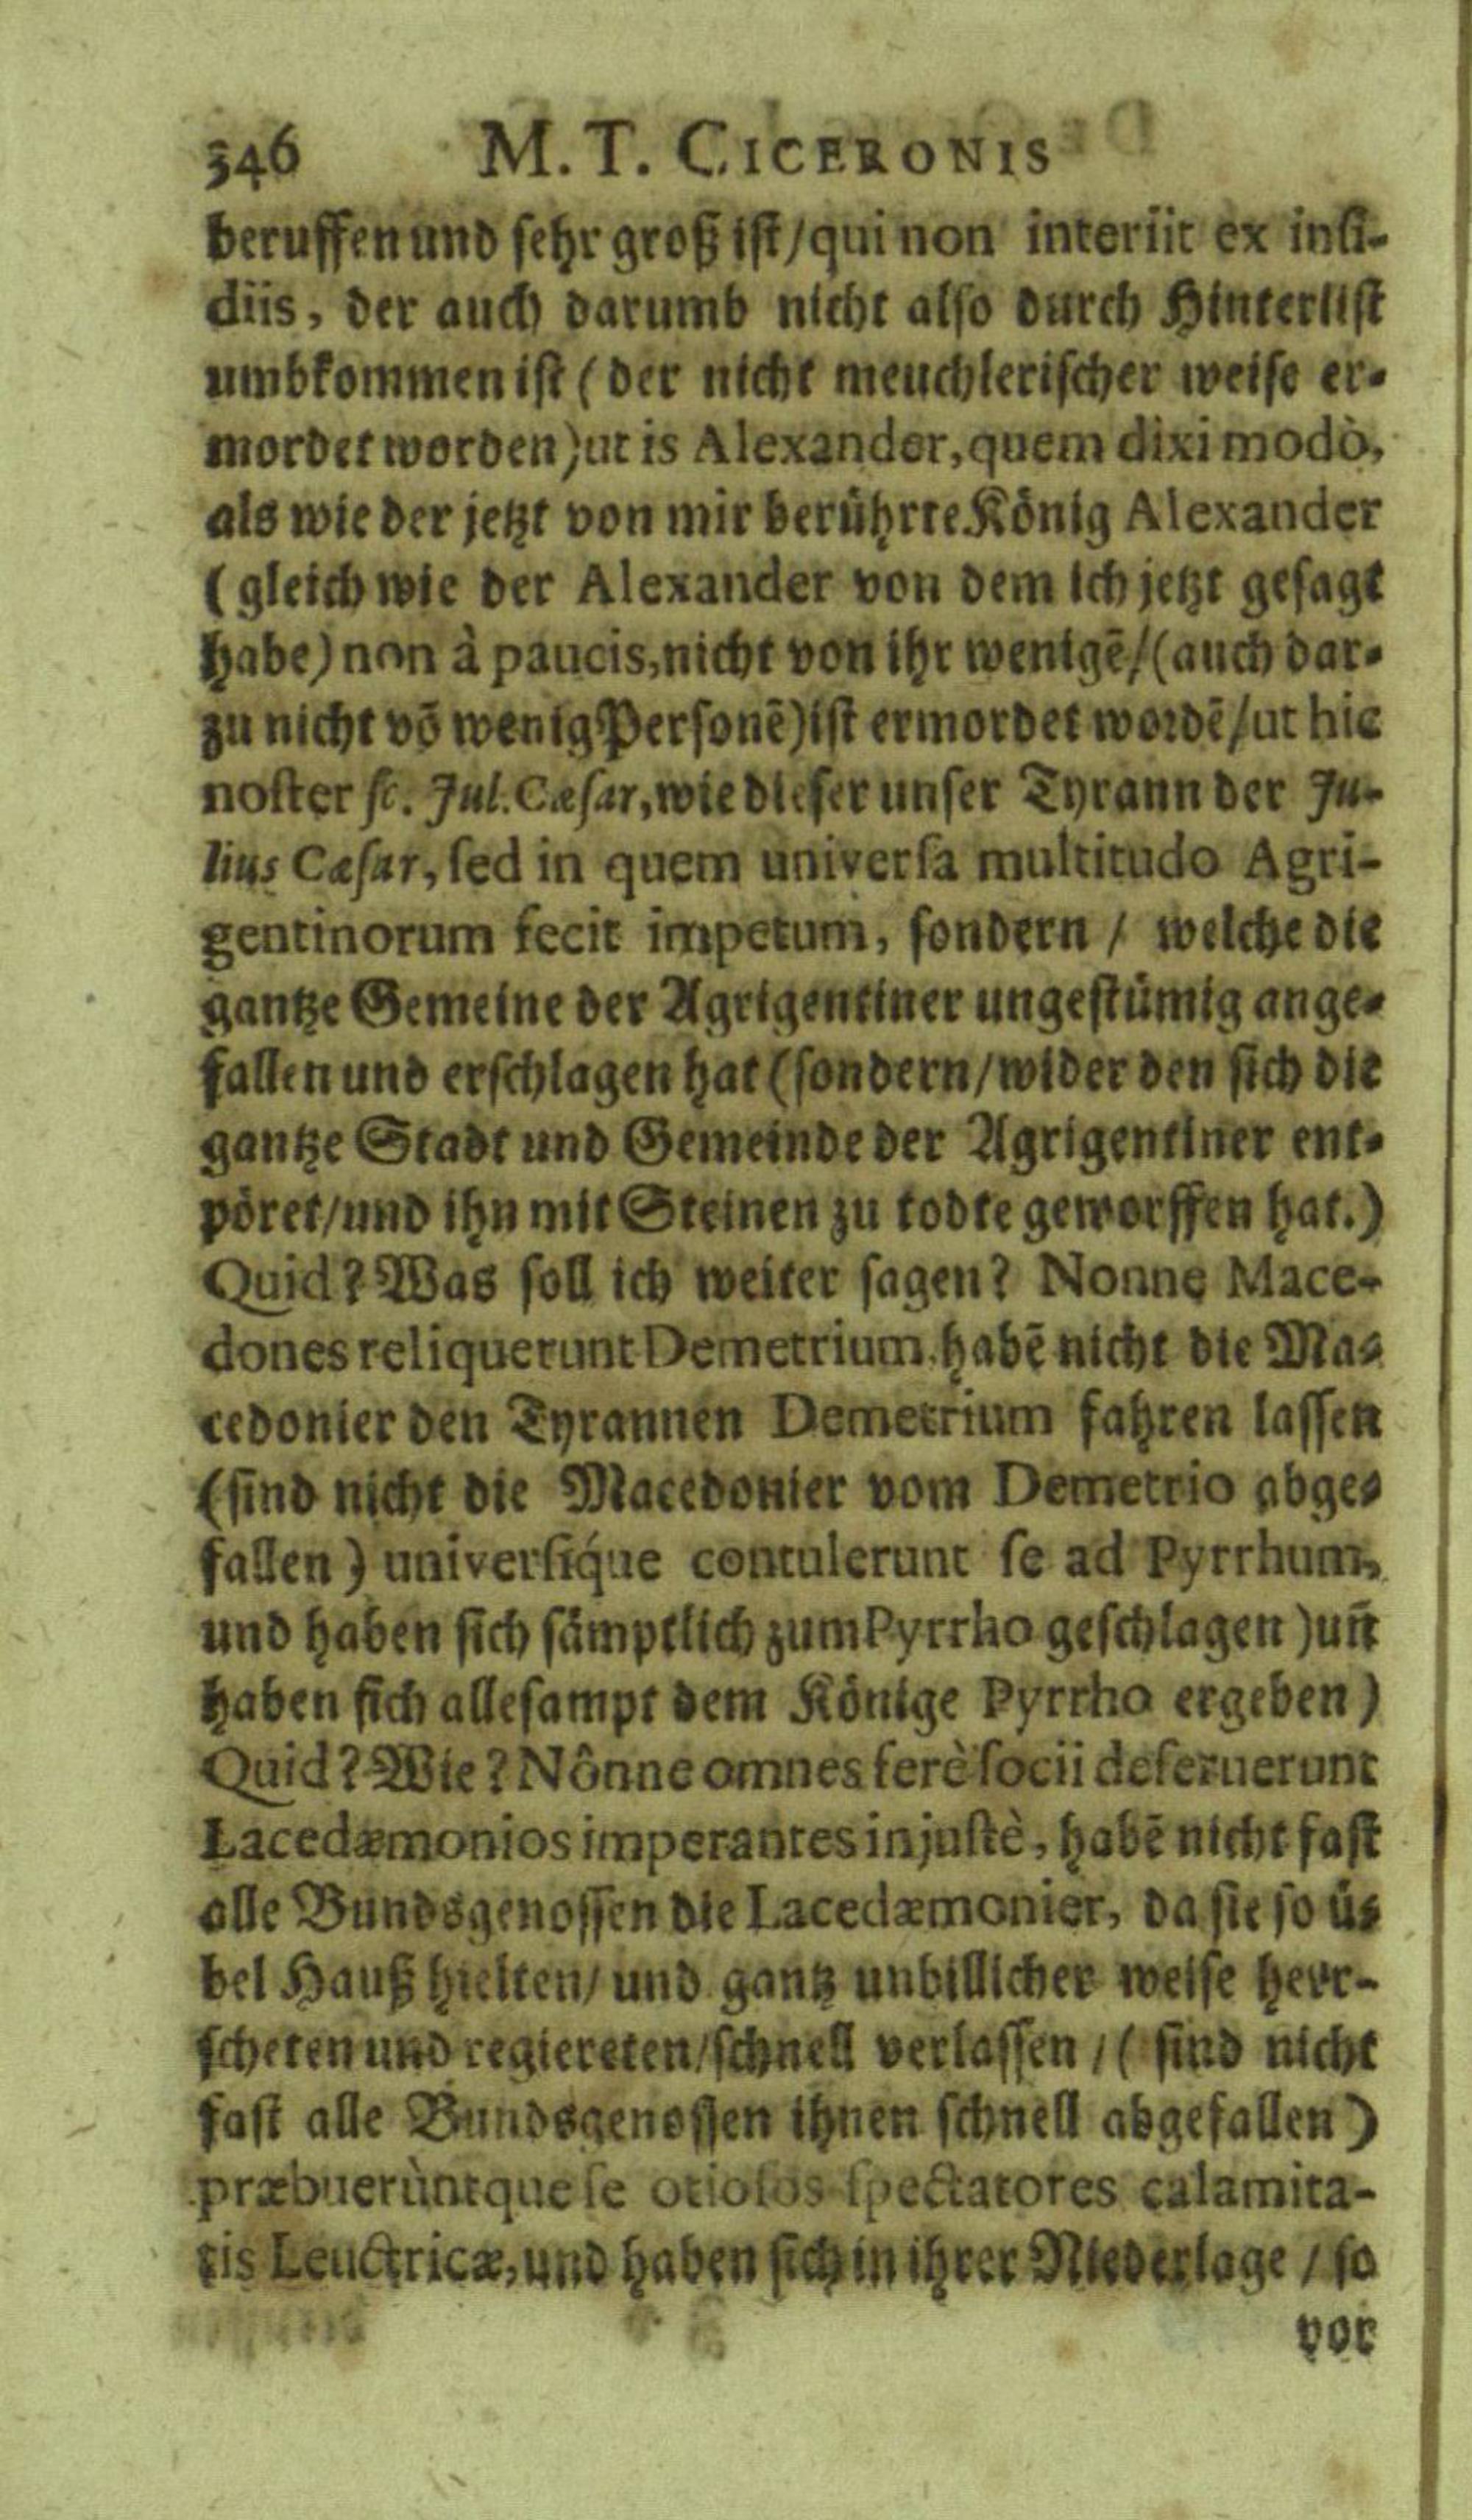 346 M. T. CICERONIS
beruffen und sehr groß ist / qui non interiit ex insi-
diis, der auch darumb nicht also durch Hinterlist
umbkommen ist (der nicht meuchlerischer weise er-
mordet worden) ut is Alexander, quem dixi modò,
als wie der jetzt von mir berührte König Alexander
(gleich wie der Alexander von dem ich jetzt gesagt
habe) non à paucis, nicht von ihr wenigē / (auch dar-
zu nicht vō wenig Personē) ist ermordet wordē / ut hic
noster sc. Jul. Cæsar, wie dieser unser Tyrann der Ju-
lius Cæsar, sed in quem universa multitudo Agri-
gentinorum fecit impetum, sondern / welche die
gantze Gemeine der Agrigentiner ungestümig ange-
fallen und erschlagen hat (sondern / wider den sich die
gantze Stadt und Gemeinde der Agrigentiner ent-
pöret / und ihn mit Steinen zu todte geworffen hat.)
Quid? Was soll ich weiter sagen? Nonne Mace-
dones reliquerunt Demetrium, habē nicht die Ma-
cedonier den Tyrannen Demetrium fahren lassen
(sind nicht die Macedonier vom Demetrio abge-
fallen) universíque contulerunt se ad Pyrrhum,
und haben sich sämptlich zum Pyrrho geschlagen) uñ
haben sich allesampt dem Könige Pyrrho ergeben)
Quid? Wie? Nônne omnes ferè socii deseruerunt
Lacedæmonios imperantes injustè, habē nicht fast
alle Bundsgenossen die Lacedæmonier, da sie so ü-
bel Hauß hielten / und gantz unbillicher weise herr-
scheten und regiereten / schnell verlassen / ( sind nicht
fast alle Bundsgenossen ihnen schnell abgefallen)
præbuerùntque se otiosos spectatores calamita-
tis Leuctricæ, und haben sich in ihrer Niederlage / so
vor